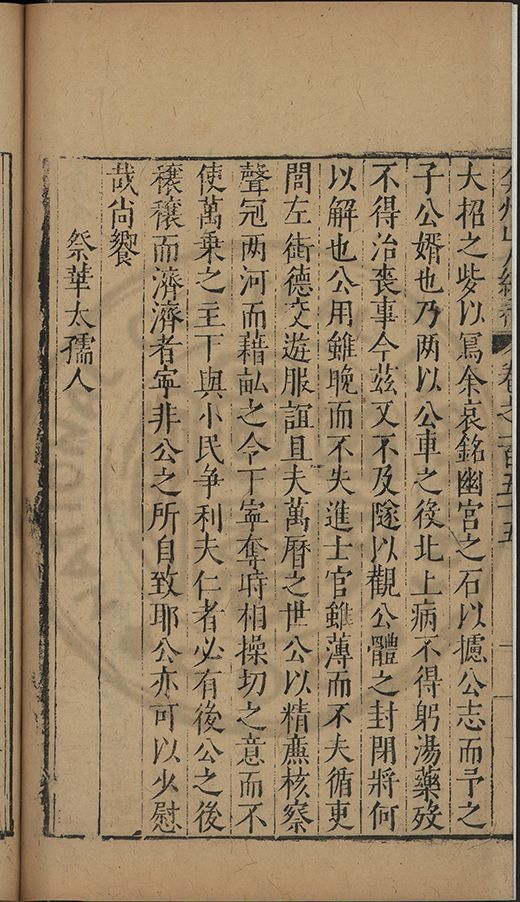 弇州山人續稿 卷之一百五十五
大招之些以寫余哀銘幽宮之石以攄公志而予之
子公婿也乃两以公車之後北上病不得躬湯藥歿
不得治喪事今茲又不及隧以觀公體之封閉將何
以解也公用雖晚而不失進士官雖薄而不夫循吏
閭左街德文遊服誼且夫萬曆之世公以精廉核察
聲冠两河而藉訕之令下寧奪時相操切之意而不
使萬乗之主下與小民争利夫仁者必有後公之後
穰穰而濟濟者寧非公之所自致耶公亦可以少慰
哉尚饗
祭華太孺人